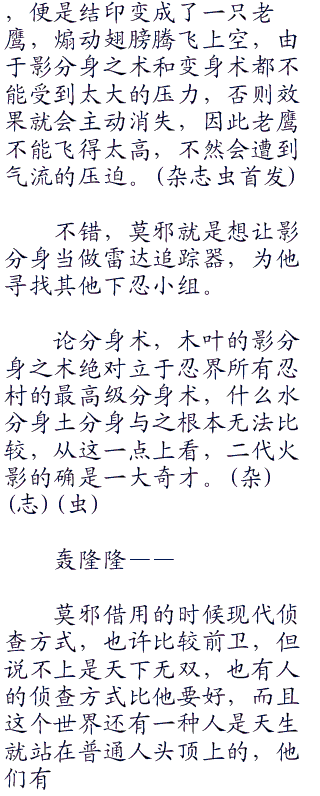 ，便是结印变成了一只老
鹰，煽动翅膀腾飞上空，由
于影分身之术和变身术都不
能受到太大的压力，否则效
果就会主动消失，因此老鹰
不能飞得太高，不然会遭到
气流的压迫。(杂志虫首发)
不错，莫邪就是想让影
分身当做雷达追踪器，为他
寻找其他下忍小组。
论分身术，木叶的影分
身之术绝对立于忍界所有忍
村的最高级分身术，什么水
分身土分身与之根本无法比
较，从这一点上看，二代火
影的确是一大奇才。(杂)
(志)(虫)
轰隆隆——
莫邪借用的时候现代侦
查方式，也许比较前卫，但
说不上是天下无双，也有人
的侦查方式比他要好，而且
这个世界还有一种人是天生
就站在普通人头顶上的，他
们有